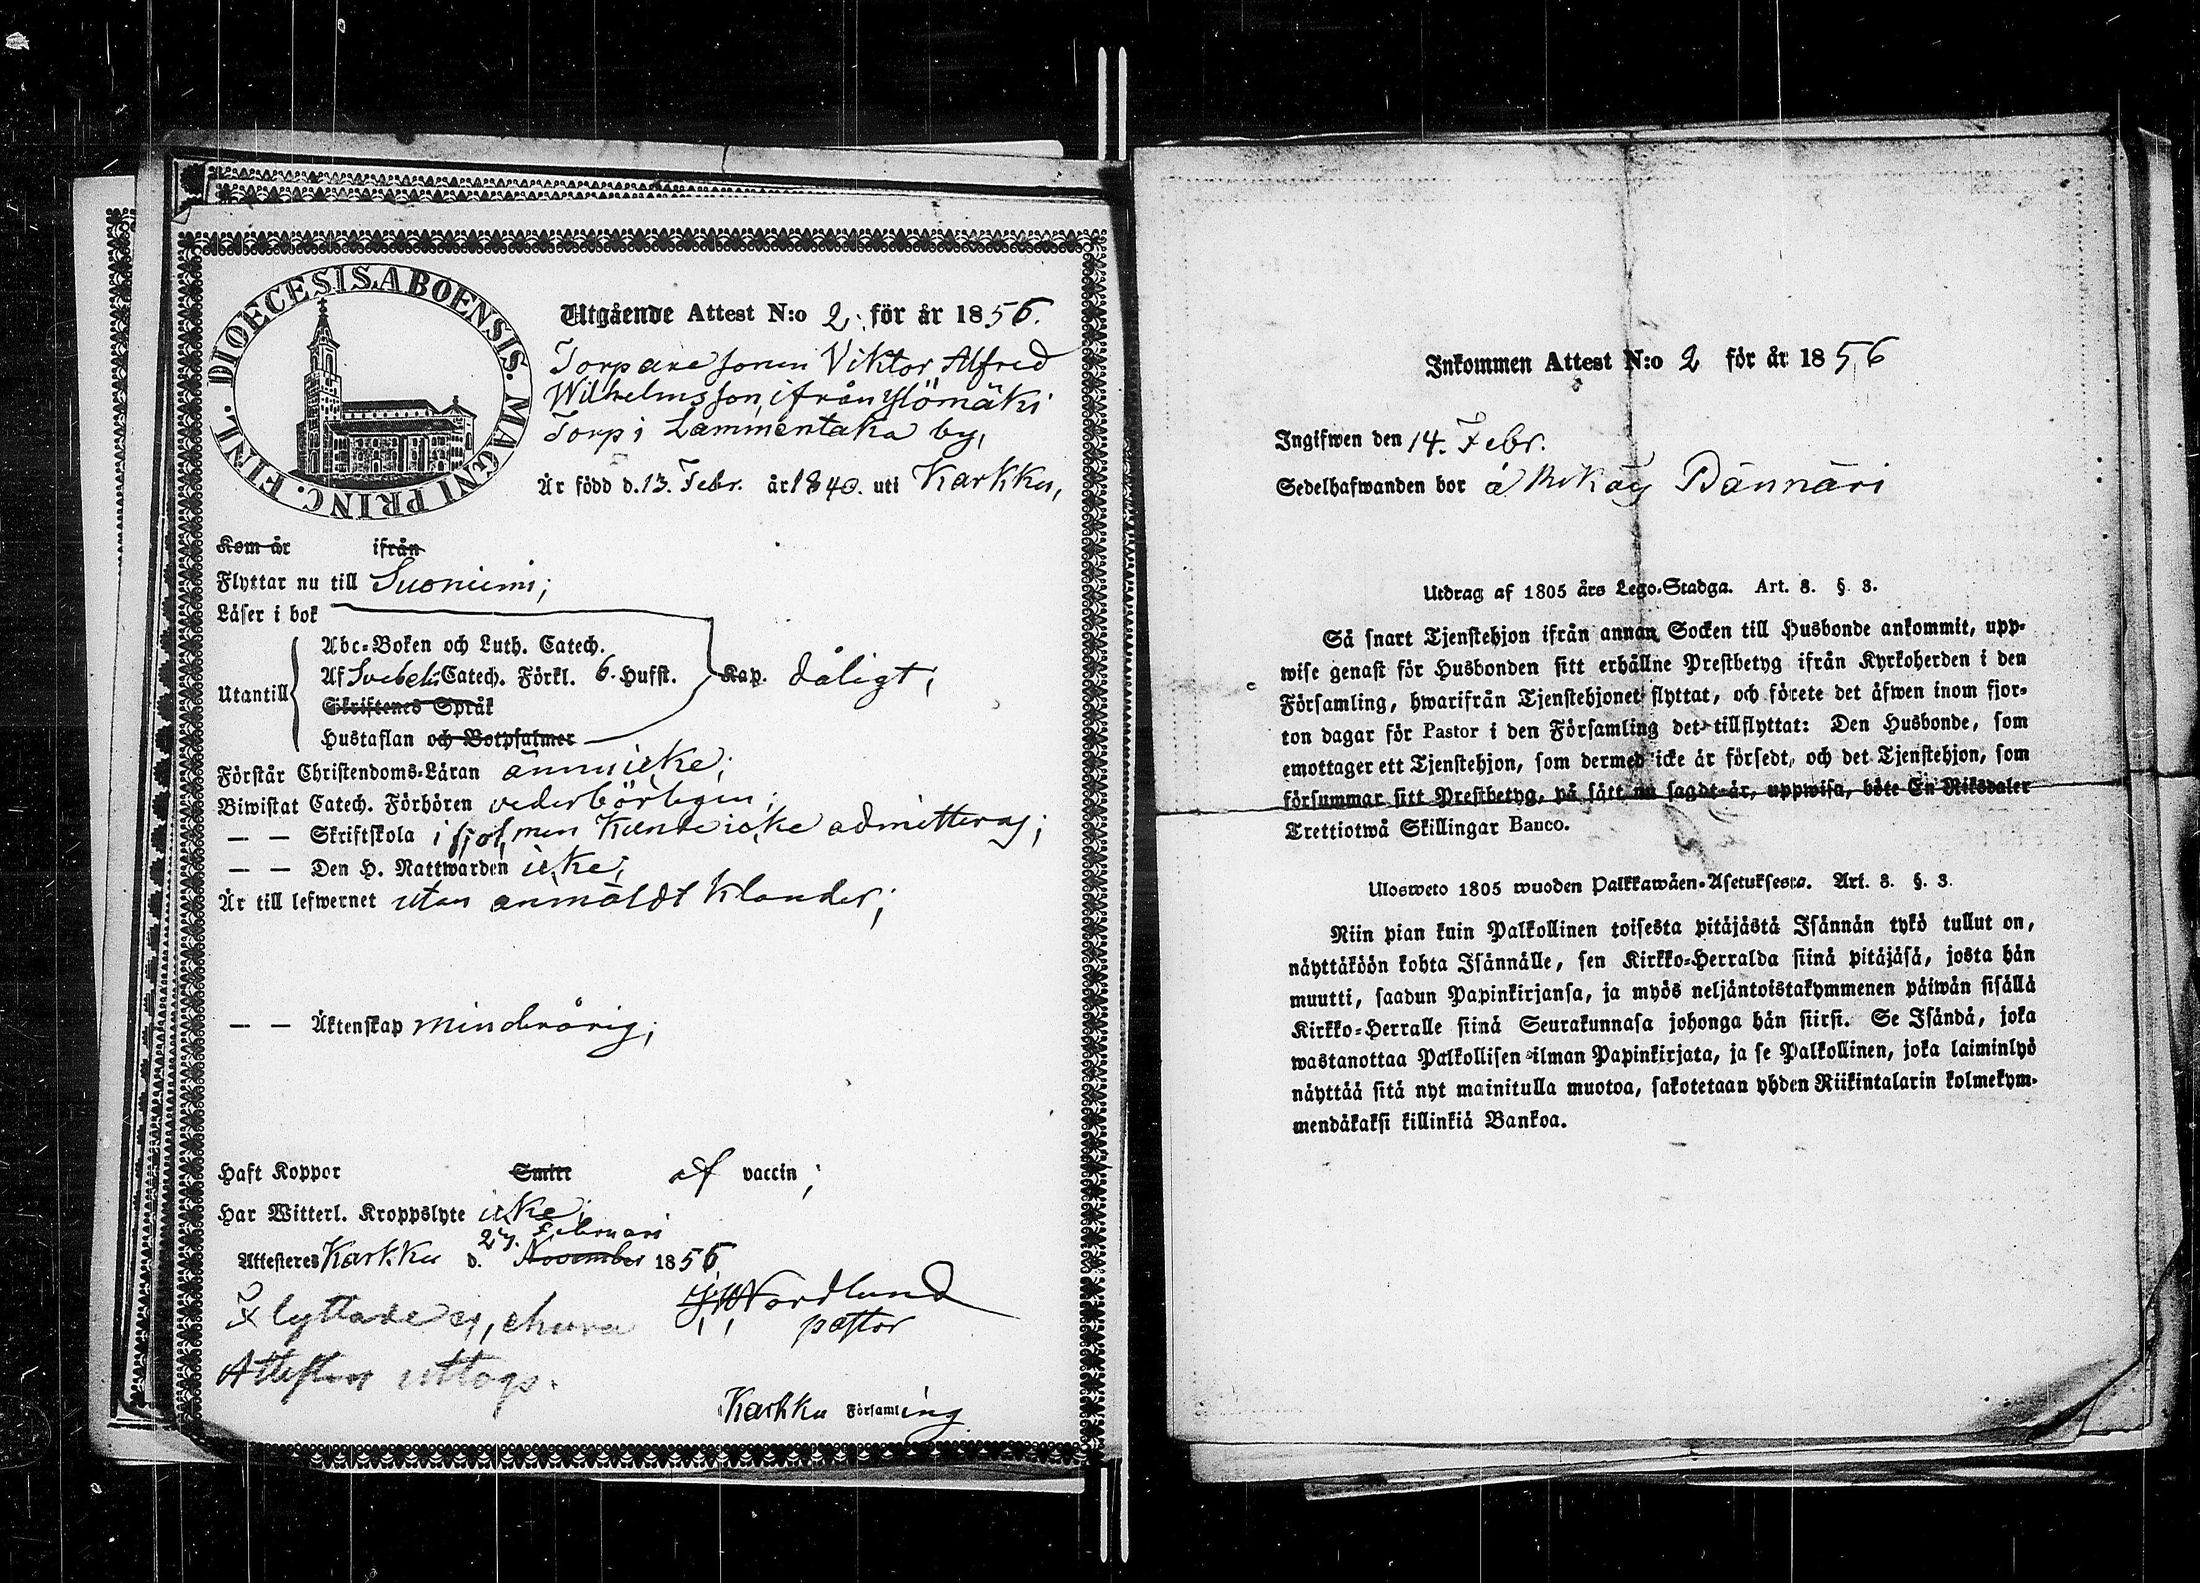 FINL. DIOECESIS. ABOENSIS. MAGNI PRINC.
Utgående Attest N:o 2. för år 1856.
Torpare sonen Viktor Alfred
Wilhelmsson, ifrån Ylömäki
Torp i Lammentaka by,
Är född d. 13. Febr. år 1840. uti Karkku,
Kom år ifrån
Flyttar nu till Suoniemi;
Läser i bok
Abc-Boken och Luth. Catech.
Utantill Af Svebeli Catech. Förkl. 6. Hufst. Kap. dåligt;
Skriftenes Språk
Hustaflan och Botpsalmer
Förstår Christendoms-Läran ännu icke;
Biwistat Catech. Förhören vederbörligen;
— — Skriftskola i fjol, men kunde icke admitteras;
— — Den H. Nattwarden icke;
Är till lefwernet utan anmäldt klander;
— — Äktenskap minderårig;
Haft Koppor Smitt af vaccin;
Har Witterl. Kroppslyte icke;
Februari
Attesteres Karkku d. November 1856
Nordlund
pastor
Flyttade ej, ehuru
Attesten uttogs.
Karkku Församling
Inkommen Attest N:o 2 för år 1856
Ingifwen den 14. Febr.
Sedelhafwanden bor å Pännäri
Utdrag af 1805 års Lego-Stadga. Art. 8. §. 3.
Så snart Tjenstehjon ifrån annan Socken till Husbonde ankommit, upp-
wise genast för Husbonden sitt erhållne Prestbetyg ifrån Kyrkoherden i den
Församling, hwarifrån Tjenstehjonet flyttat, och förete det äfwen inom fjor-
ton dagar för Pastor i den Församling det tillflyttat: Den Husbonde, som
emottager ett Tjenstehjon, som dermed icke är försedt, och det Tjenstehjon, som
försummar sitt Prestbetyg, på sätt nu sagdt är, uppwisa, böte En Riksdaler
Trettiotwå Skillingar Banco.
Ulosweto 1805 wuoden Palkkawäen-Asetuksesta. Art. 8. §. 3.
Niin pian kuin Palkollinen toisesta pitäjästä Isännän tykö tullut on,
näyttäköön kohta Isännälle, sen Kirkko-Herralda siinä pitäjäsä, josta hän
muutti, saadun Papinkirjansa, ja myös neljäntoistakymmenen päiwän sisällä
Kirkko-Herralle siinä Seurakunnasa johonga hän siirsi. Se Isändä, joka
wastanottaa Palkollisen ilman Papinkirjata, ja se Palkollinen, joka laiminlyö
näyttää sitä nyt mainitulla muotoa, sakotetaan yhden Riikintalarin kolmekym-
mendäkaksi killinkiä Bankoa.